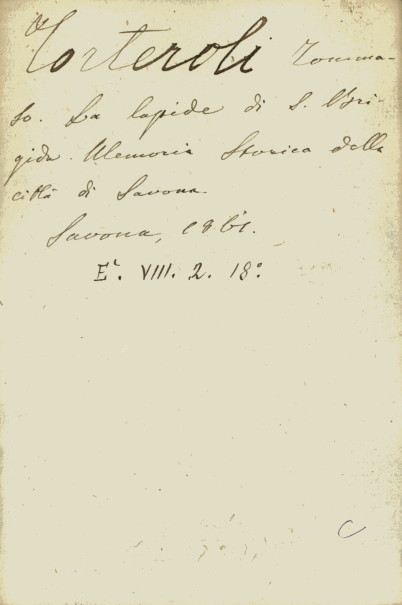 Torteroli Tomma-
so. La lapide di S. Bri-
gida. Memoria Storica della
città di Savona.
Savona, 1861.
E². VIII. 2. 18°
C